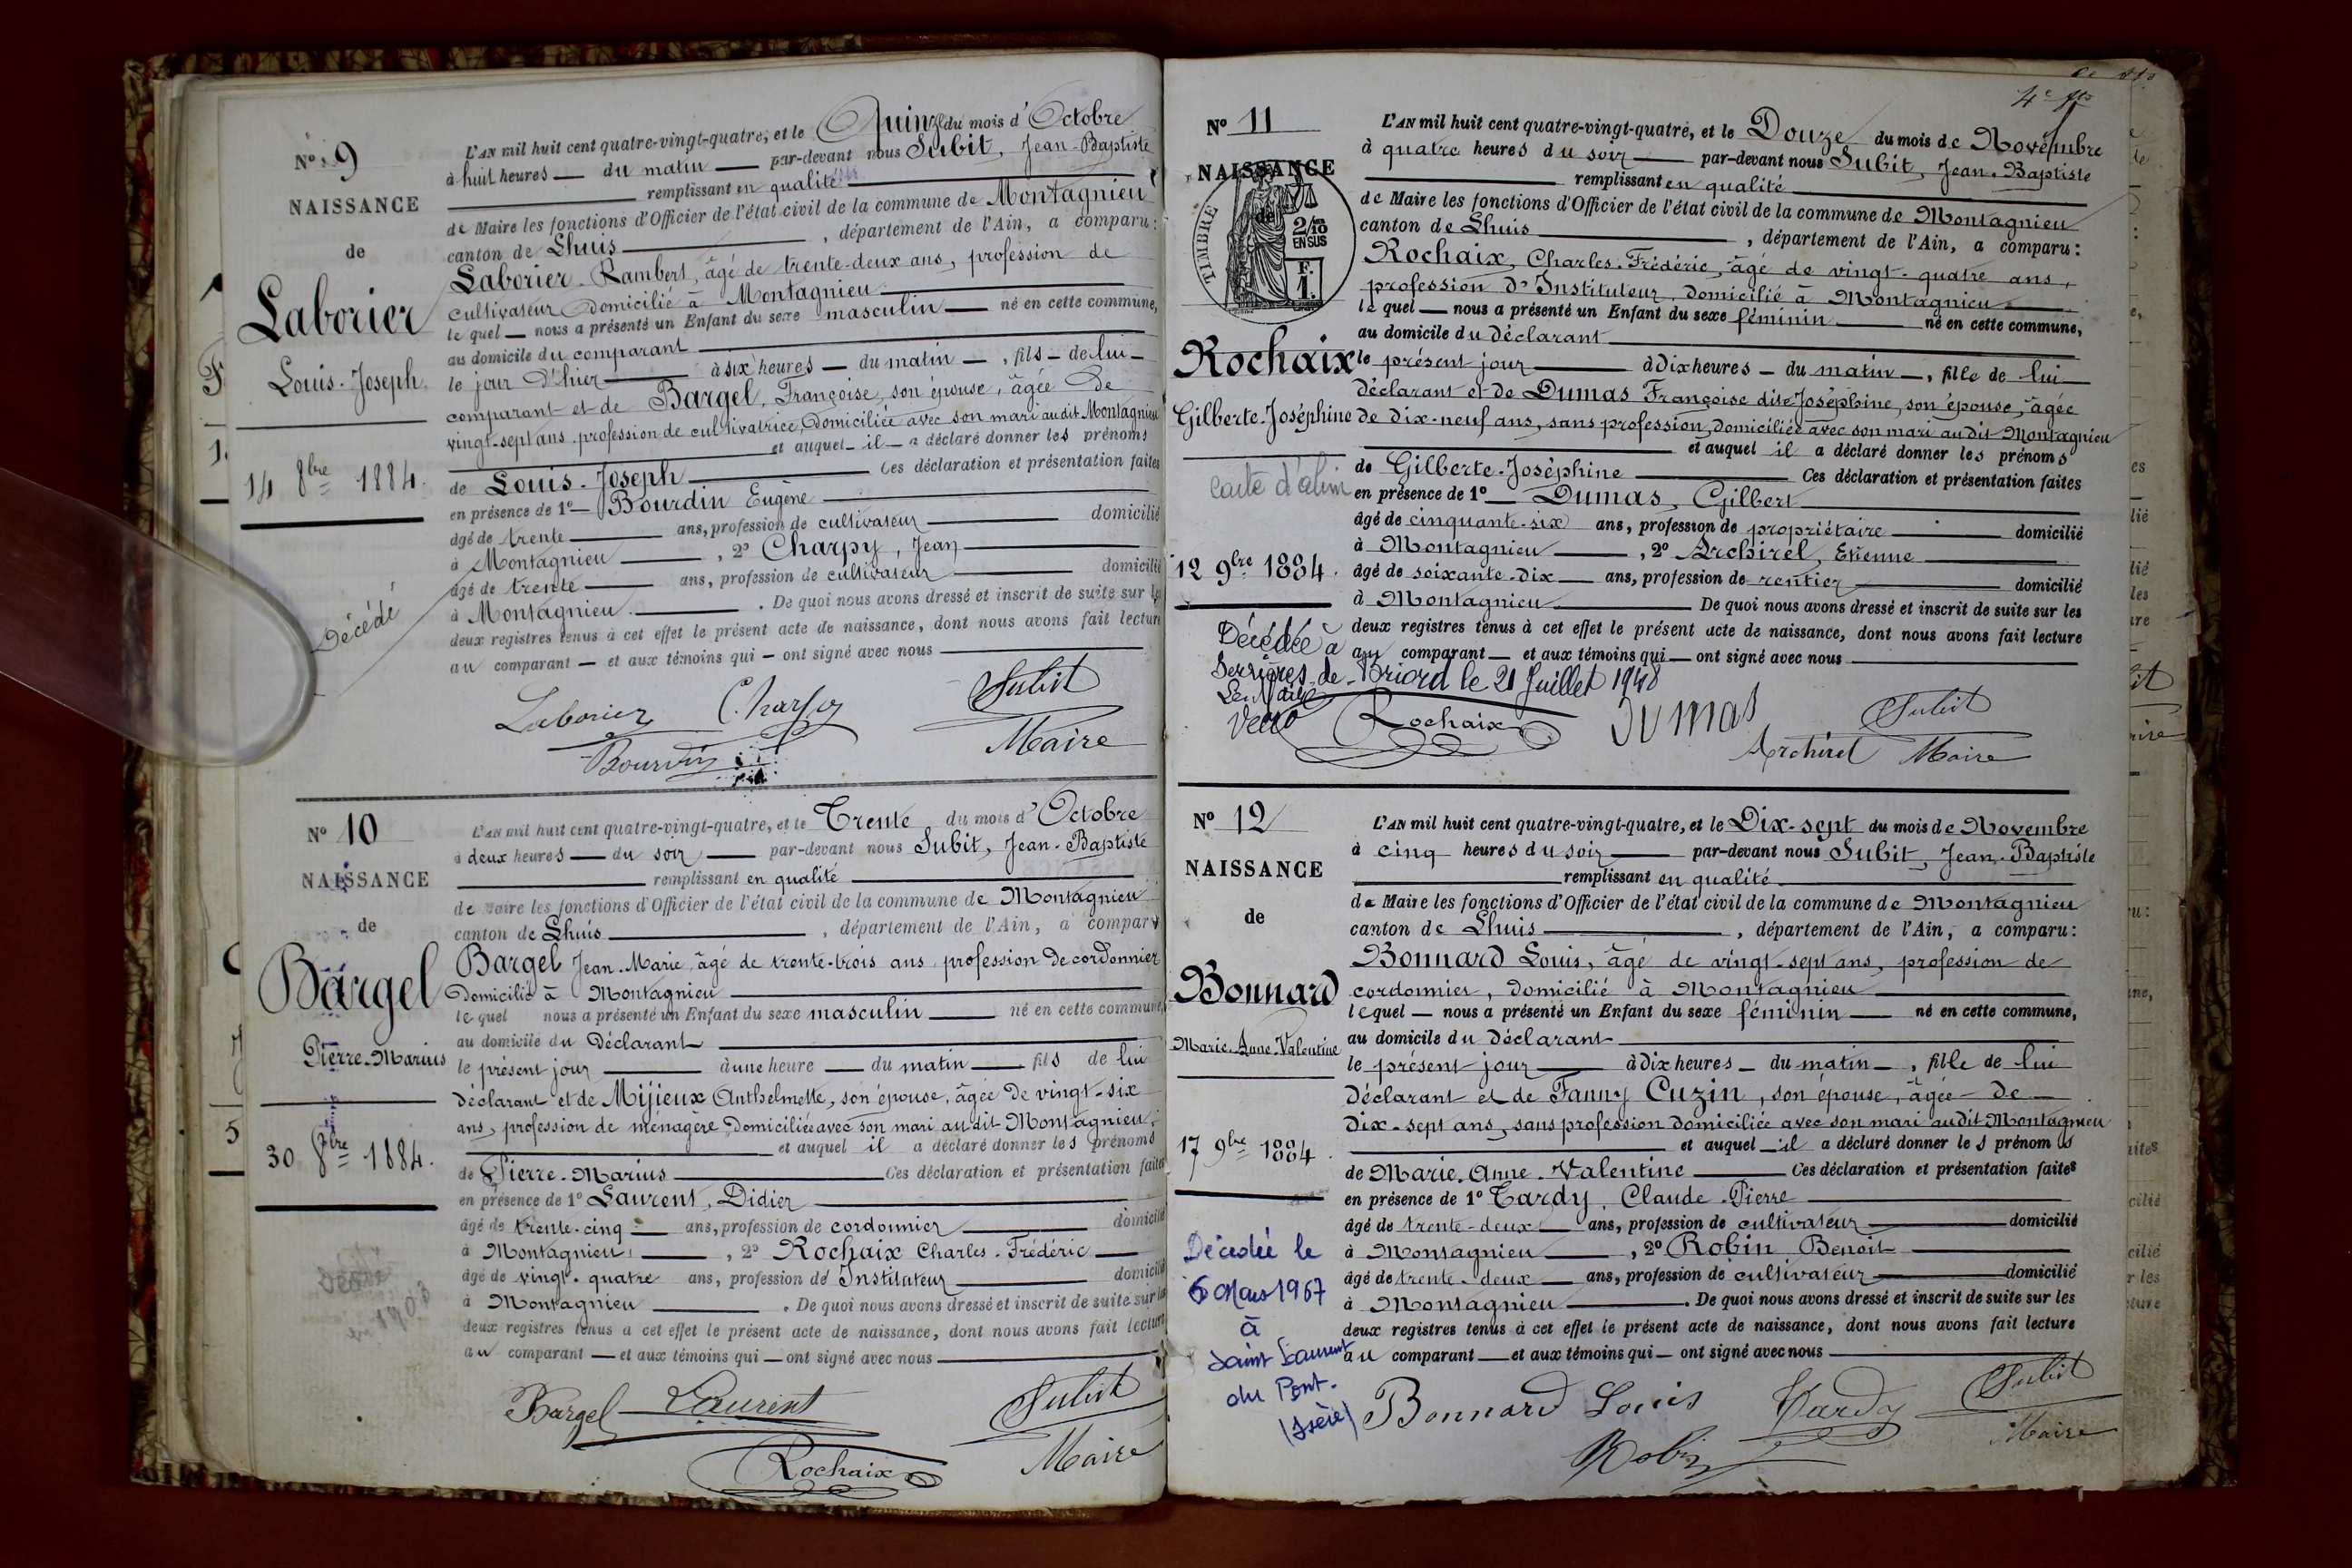 N° 9
NAISSANCE
de
Laborier
Louis-Joseph
14 8bre 1884.
Décédé
L'AN mil huit cent quatre-vingt-quatre, et le Quinze du mois d'Octobre
à huit heures — du matin — par-devant nous Subit, Jean-Baptiste
remplissant en qualité
de Maire les fonctions d'Officier de l'état civil de la commune de Montagnieu
canton de Lhuis, département de l'Ain, a comparu:
Laborier Rambert, âgé de trente-deux ans, profession de
cultivateur domicilié à Montagnieu
le quel — nous a présenté un Enfant du sexe masculin — né en cette commune,
au domicile du comparant
le jour d'hier — à six heures — du matin —, fils — de lui —
comparant et de Bargel, Françoise, son épouse, âgée de
vingt-sept ans profession de cultivatrice, domiciliée avec son mari audit Montagnieu
et auquel — il — a déclaré donner les prénoms
de Louis-Joseph — Ces déclaration et présentation faites
en présence de 1° — Bourdin Eugène
âgé de trente — ans, profession de cultivateur — domicilié
à Montagnieu —, 2° Charpy, Jean
âgé de trente — ans, profession de cultivateur — domicilié
à Montagnieu. — De quoi nous avons dressé et inscrit de suite sur les
deux registres tenus à cet effet le présent acte de naissance, dont nous avons fait lecture
au comparant — et aux témoins qui — ont signé avec nous
Laborier Charpy Subit
Bourdin Maire
N° 10
NAISSANCE
de
Bargel
Pierre-Marius
30 8bre 1884.
L'AN mil huit cent quatre-vingt-quatre, et le Trente du mois d'Octobre
à deux heures — du soir — par-devant nous Subit, Jean-Baptiste
remplissant en qualité
de Maire les fonctions d'Officier de l'état civil de la commune de Montagnieu
canton de Lhuis, département de l'Ain, a comparu
Bargel Jean-Marie, âgé de trente-trois ans, profession de cordonnier
domicilié à Montagnieu
le quel nous a présenté un Enfant du sexe masculin — né en cette commune,
au domicile du déclarant
le présent jour — à une heure — du matin — fils de lui
déclarant et de Mijieux Anthelmette, son épouse, âgée de vingt-six
ans, profession de ménagère domiciliée avec son mari audit Montagnieu,
et auquel il a déclaré donner les prénoms
de Pierre-Marius — Ces déclaration et présentation faites
en présence de 1° Laurent, Didier
âgé de trente-cinq — ans, profession de cordonnier — domicilié
à Montagnieu, —, 2° Rochaix Charles-Frédéric —
âgé de vingt-quatre ans, profession de Instituteur — domicilié
à Montagnieu —. De quoi nous avons dressé et inscrit de suite sur les
deux registres tenus à cet effet le présent acte de naissance, dont nous avons fait lecture
au comparant — et aux témoins qui — ont signé avec nous
Bargel Laurent Subit
Rochaix Maire
N° 11
NAISSANCE
de
TIMBRE
2/10
EN SUS
F.
1.
Rochaix
Gilberte-Joséphine
Carte d'alim
12 9bre 1884.
Décédée à
Serrières-de-Briord le 21 Juillet 1948
L'AN mil huit cent quatre-vingt-quatre, et le Douze du mois de Novembre
à quatre heures du soir — par-devant nous Subit, Jean-Baptiste
remplissant en qualité
de Maire les fonctions d'Officier de l'état civil de la commune de Montagnieu
canton de Lhuis, département de l'Ain, a comparu:
Rochaix, Charles-Frédéric, âgé de vingt-quatre ans,
profession d'Instituteur, domicilié à Montagnieu
le quel — nous a présenté un Enfant du sexe féminin — né en cette commune,
au domicile du déclarant
le présent jour — à dix heures — du matin —, fille de lui
déclarant et de Dumas Françoise dite Joséphine, son épouse, âgée
de dix-neuf ans, sans profession, domiciliée avec son mari audit Montagnieu
et auquel il a déclaré donner les prénoms
de Gilberte-Joséphine — Ces déclaration et présentation faites
en présence de 1° — Dumas, Gilbert
âgé de cinquante-six ans, profession de propriétaire — domicilié
à Montagnieu —, 2° Archirel, Etienne
âgé de soixante-dix — ans, profession de rentier — domicilié
à Montagnieu — De quoi nous avons dressé et inscrit de suite sur les
deux registres tenus à cet effet le présent acte de naissance, dont nous avons fait lecture
au comparant — et aux témoins qui — ont signé avec nous
Rochaix Dumas Subit
Archirel Maire
N° 12
NAISSANCE
de
Bonnard
Marie-Anne-Valentine
17 9bre 1884.
Décédée le
6 Mars 1967
à
Saint Laurent
du Pont.
(Isère)
L'AN mil huit cent quatre-vingt-quatre, et le Dix-sept du mois de Novembre
à cinq heures du soir — par-devant nous Subit, Jean-Baptiste
remplissant en qualité
de Maire les fonctions d'Officier de l'état civil de la commune de Montagnieu
canton de Lhuis, département de l'Ain, a comparu:
Bonnard Louis, âgé de vingt-sept ans, profession de
cordonnier, domicilié à Montagnieu
lequel — nous a présenté un Enfant du sexe féminin — né en cette commune,
au domicile du déclarant
le présent jour — à dix heures — du matin —, fille de lui
déclarant et de Fanny Cuzin, son épouse, âgée de —
dix-sept ans, sans profession domiciliée avec son mari audit Montagnieu
et auquel — il a déclaré donner les prénoms
de Marie-Anne-Valentine — Ces déclaration et présentation faites
en présence de 1° Tardy, Claude-Pierre
âgé de trente-deux — ans, profession de cultivateur — domicilié
à Montagnieu —, 2° Robin Benoit
âgé de trente-deux — ans, profession de cultivateur — domicilié
à Montagnieu —. De quoi nous avons dressé et inscrit de suite sur les
deux registres tenus à cet effet le présent acte de naissance, dont nous avons fait lecture
au comparant — et aux témoins qui — ont signé avec nous
Bonnard Louis Tardy Subit
Robin Maire